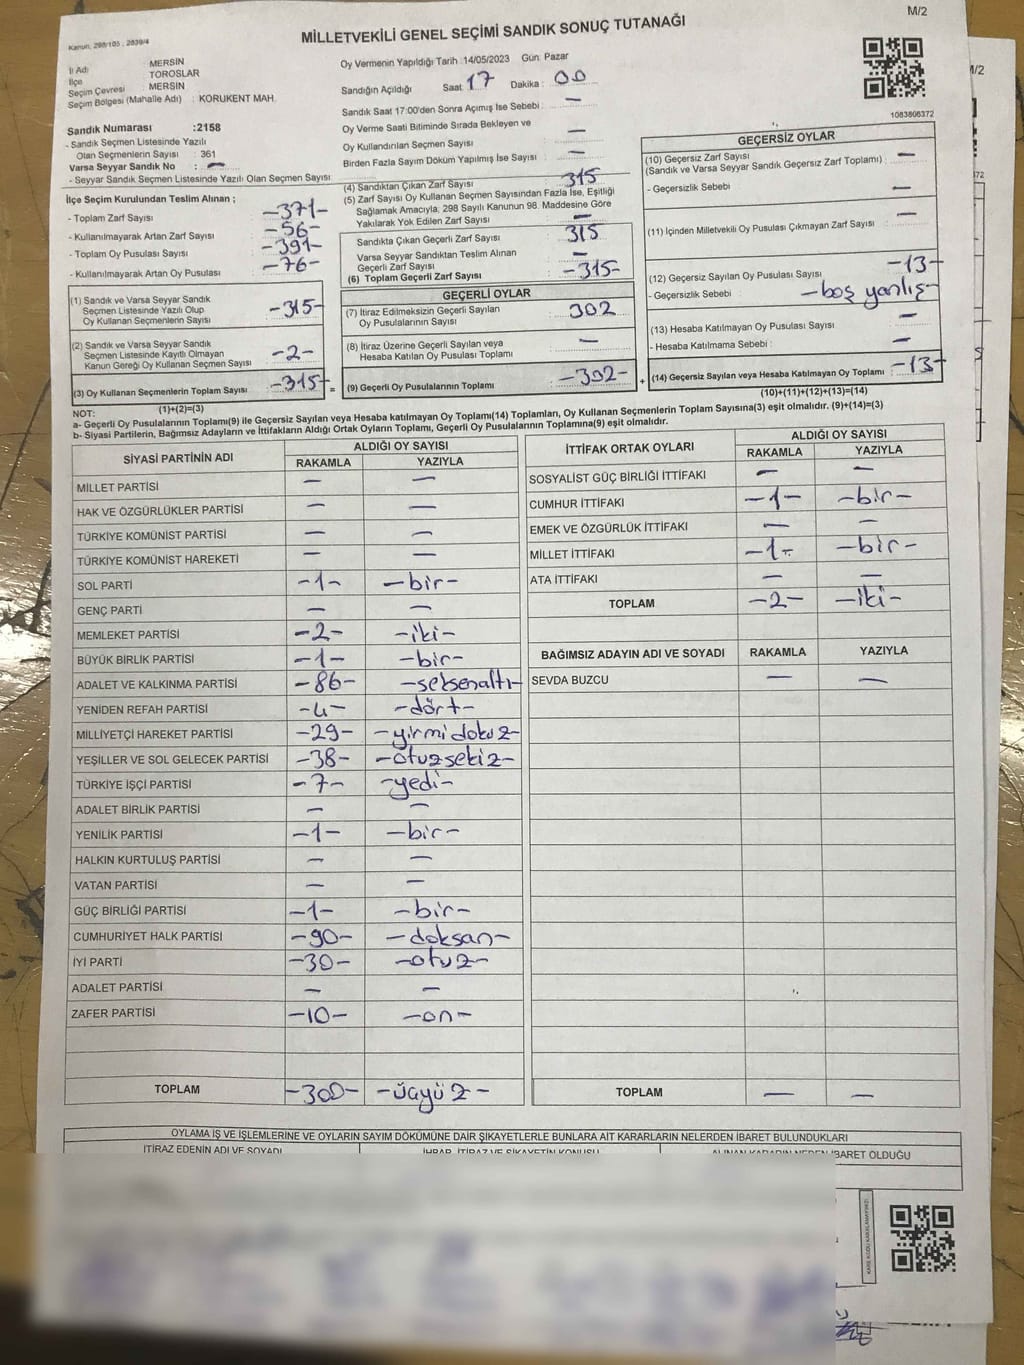 M/2
Kanun, 298/105 , 2839/4
MİLLETVEKİLİ GENEL SEÇİMİ SANDIK SONUÇ TUTANAĞI
İl Adı : MERSİN
İlçe : TOROSLAR
Seçim Çevresi : MERSİN
Seçim Bölgesi (Mahalle Adı) : KORUKENT MAH.
Sandık Numarası :2158
- Sandık Seçmen Listesinde Yazılı
Olan Seçmenlerin Sayısı : 361
Varsa Seyyar Sandık No : —
- Seyyar Sandık Seçmen Listesinde Yazılı Olan Seçmen Sayısı
Oy Vermenin Yapıldığı Tarih :14/05/2023 Gün: Pazar
Sandığın Açıldığı Saat : 17 Dakika : 00
Sandık Saat 17:00'den Sonra Açımış İse Sebebi : —
Oy Verme Saati Bitiminde Sırada Bekleyen ve
Oy Kullandırılan Seçmen Sayısı —
Birden Fazla Sayım Döküm Yapılmış İse Sayısı : —
1083806372
İlçe Seçim Kurulundan Teslim Alınan ;
- Toplam Zarf Sayısı -371-
- Kullanılmayarak Artan Zarf Sayısı -56-
- Toplam Oy Pusulası Sayısı -391-
- Kullanılmayarak Artan Oy Pusulası -76-
(1) Sandık ve Varsa Seyyar Sandık
Seçmen Listesinde Yazılı Olup
Oy Kullanan Seçmenlerin Sayısı -315-
(2) Sandık ve Varsa Seyyar Sandık
Seçmen Listesinde Kayıtlı Olmayan
Kanun Gereği Oy Kullanan Seçmen Sayısı -2-
(3) Oy Kullanan Seçmenlerin Toplam Sayısı -315- =
(1)+(2)=(3)
(4) Sandıktan Çıkan Zarf Sayısı 315
(5) Zarf Sayısı Oy Kullanan Seçmen Sayısından Fazla İse, Eşitliği
Sağlamak Amacıyla, 298 Sayılı Kanunun 98. Maddesine Göre
Yakılarak Yok Edilen Zarf Sayısı : —
Sandıkta Çıkan Geçerli Zarf Sayısı 315
Varsa Seyyar Sandıktan Teslim Alınan
Geçerli Zarf Sayısı —
(6) Toplam Geçerli Zarf Sayısı -315-
GEÇERLİ OYLAR
(7) İtiraz Edilmeksizin Geçerli Sayılan
Oy Pusulalarının Sayısı 302
(8) İtiraz Üzerine Geçerli Sayılan veya
Hesaba Katılan Oy Pusulası Toplamı —
(9) Geçerli Oy Pusulalarının Toplamı -302- +
GEÇERSİZ OYLAR
(10) Geçersiz Zarf Sayısı
(Sandık ve Varsa Seyyar Sandık Geçersiz Zarf Toplamı) : —
- Geçersizlik Sebebi —
(11) İçinden Milletvekili Oy Pusulası Çıkmayan Zarf Sayısı —
(12) Geçersiz Sayılan Oy Pusulası Sayısı -13-
- Geçersizlik Sebebi : -boş yanlış-
(13) Hesaba Katılmayan Oy Pusulası Sayısı —
- Hesaba Katılmama Sebebi : —
(14) Geçersiz Sayılan veya Hesaba Katılmayan Oy Toplamı -13-
(10)+(11)+(12)+(13)=(14)
NOT:
a- Geçerli Oy Pusulalarının Toplamı(9) ile Geçersiz Sayılan veya Hesaba katılmayan Oy Toplamı(14) Toplamları, Oy Kullanan Seçmenlerin Toplam Sayısına(3) eşit olmalıdır. (9)+(14)=(3)
b- Siyasi Partilerin, Bağımsız Adayların ve İttifakların Aldığı Ortak Oyların Toplamı, Geçerli Oy Pusulalarının Toplamına(9) eşit olmalıdır.
SİYASİ PARTİNİN ADI ALDIĞI OY SAYISI
RAKAMLA YAZIYLA
MİLLET PARTİSİ — —
HAK VE ÖZGÜRLÜKLER PARTİSİ — —
TÜRKİYE KOMÜNİST PARTİSİ — —
TÜRKİYE KOMÜNİST HAREKETİ — —
SOL PARTİ -1- -bir-
GENÇ PARTİ — —
MEMLEKET PARTİSİ -2- -iki-
BÜYÜK BİRLİK PARTİSİ -1- -bir-
ADALET VE KALKINMA PARTİSİ -86- -seksenaltı-
YENİDEN REFAH PARTİSİ -4- -dört-
MİLLİYETÇİ HAREKET PARTİSİ -29- -yirmidokuz-
YEŞİLLER VE SOL GELECEK PARTİSİ -38- -otuzsekiz-
TÜRKİYE İŞÇİ PARTİSİ -7- -yedi-
ADALET BİRLİK PARTİSİ — —
YENİLİK PARTİSİ -1- -bir-
HALKIN KURTULUŞ PARTİSİ — —
VATAN PARTİSİ — —
GÜÇ BİRLİĞİ PARTİSİ -1- -bir-
CUMHURİYET HALK PARTİSİ -90- -doksan-
İYİ PARTİ -30- -otuz-
ADALET PARTİSİ — —
ZAFER PARTİSİ -10- -on-
TOPLAM -300- -üçyüz-
İTTİFAK ORTAK OYLARI ALDIĞI OY SAYISI
RAKAMLA YAZIYLA
SOSYALİST GÜÇ BİRLİĞİ İTTİFAKI — —
CUMHUR İTTİFAKI -1- -bir-
EMEK VE ÖZGÜRLÜK İTTİFAKI — —
MİLLET İTTİFAKI -1- -bir-
ATA İTTİFAKI — —
TOPLAM -2- -iki-
BAĞIMSIZ ADAYIN ADI VE SOYADI RAKAMLA YAZIYLA
SEVDA BUZCU — —
TOPLAM — —
OYLAMA İŞ VE İŞLEMLERİNE VE OYLARIN SAYIM DÖKÜMÜNE DAİR ŞİKAYETLERLE BUNLARA AİT KARARLARIN NELERDEN İBARET BULUNDUKLARI
İTİRAZ EDENİN ADI VE SOYADI İHBAR, İTİRAZ VE ŞİKAYETİN KONUSU ALINAN KARARIN NEDEN İBARET OLDUĞU